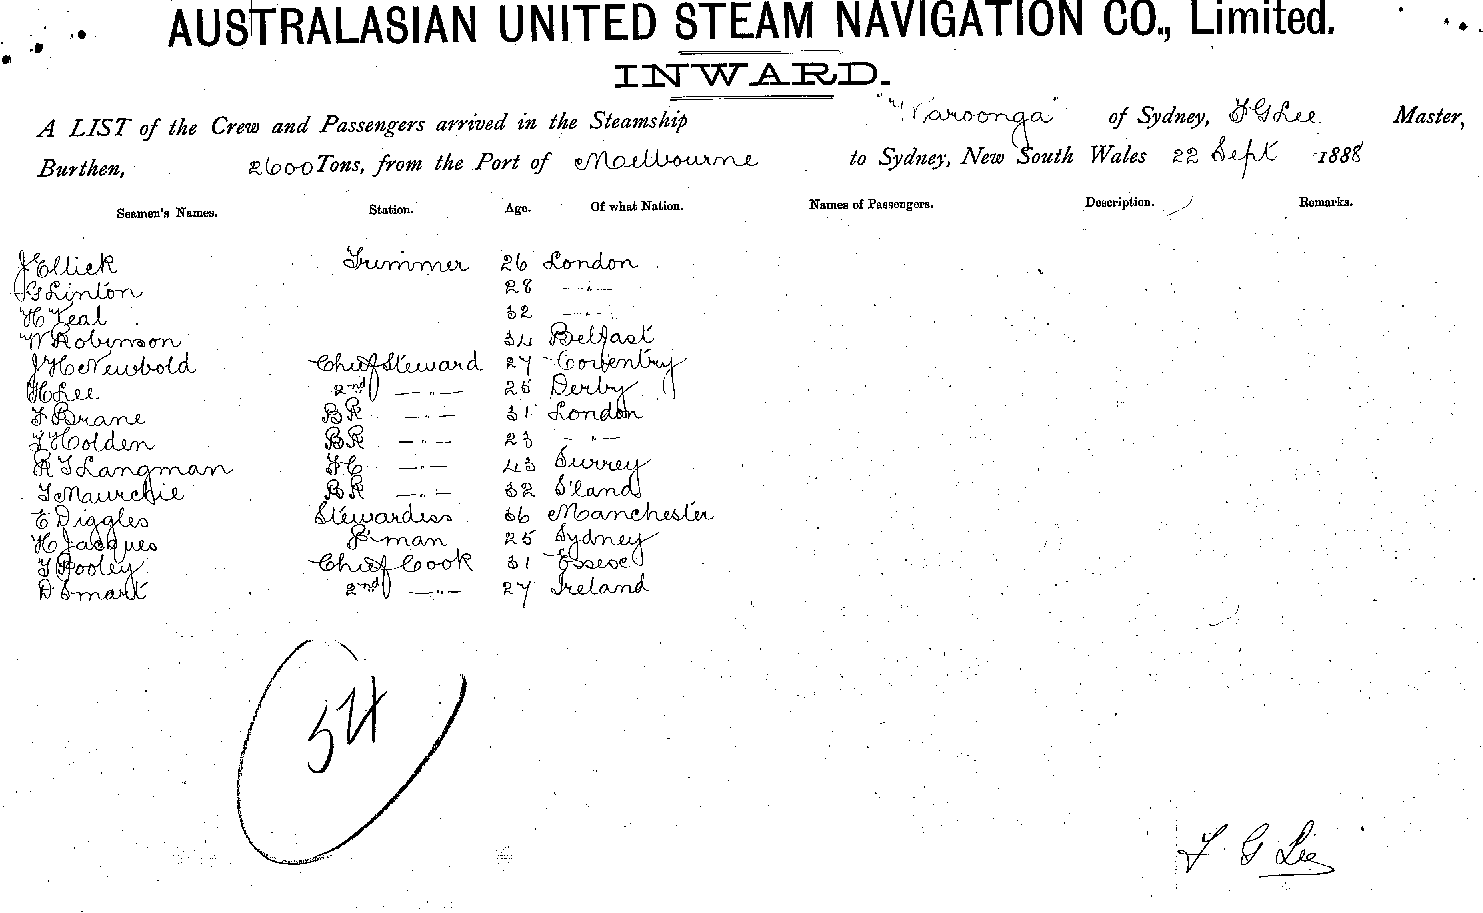 AUSTRALASIAN UNITED STEAM NAVIGATION CO., Limited.
INWARD.
A LIST of the Crew and Passengers arrived in the Steamship "Waroonga" of Sydney, F G Lee Master,
Burthen, 2600 Tons, from the Port of Melbourne to Sydney, New South Wales 22 Sept 1888
Seamen's Names. Station. Age. Of what Nation. Names of Passengers. Description. Remarks.
J Ellick Trimmer 26 London
G Linton 28 —"—
H Teal 32 —"—
W Robinson 34 Belfast
J H Newbold Chief Steward 27 Coventry
H Lee 2nd —"— 25 Derby
F Brane BR —"— 31 London
F Holden BR —"— 23 —"—
R G Langman FC —"— 43 Surrey
BR —"— 32 S'land
E Diggles Stewardess 36 Manchester
H Jacques P-man 25 Sydney
F Pooley Chief Cook 31 Essex
D Smart 2nd —"— 27 Ireland
54
F G Lee